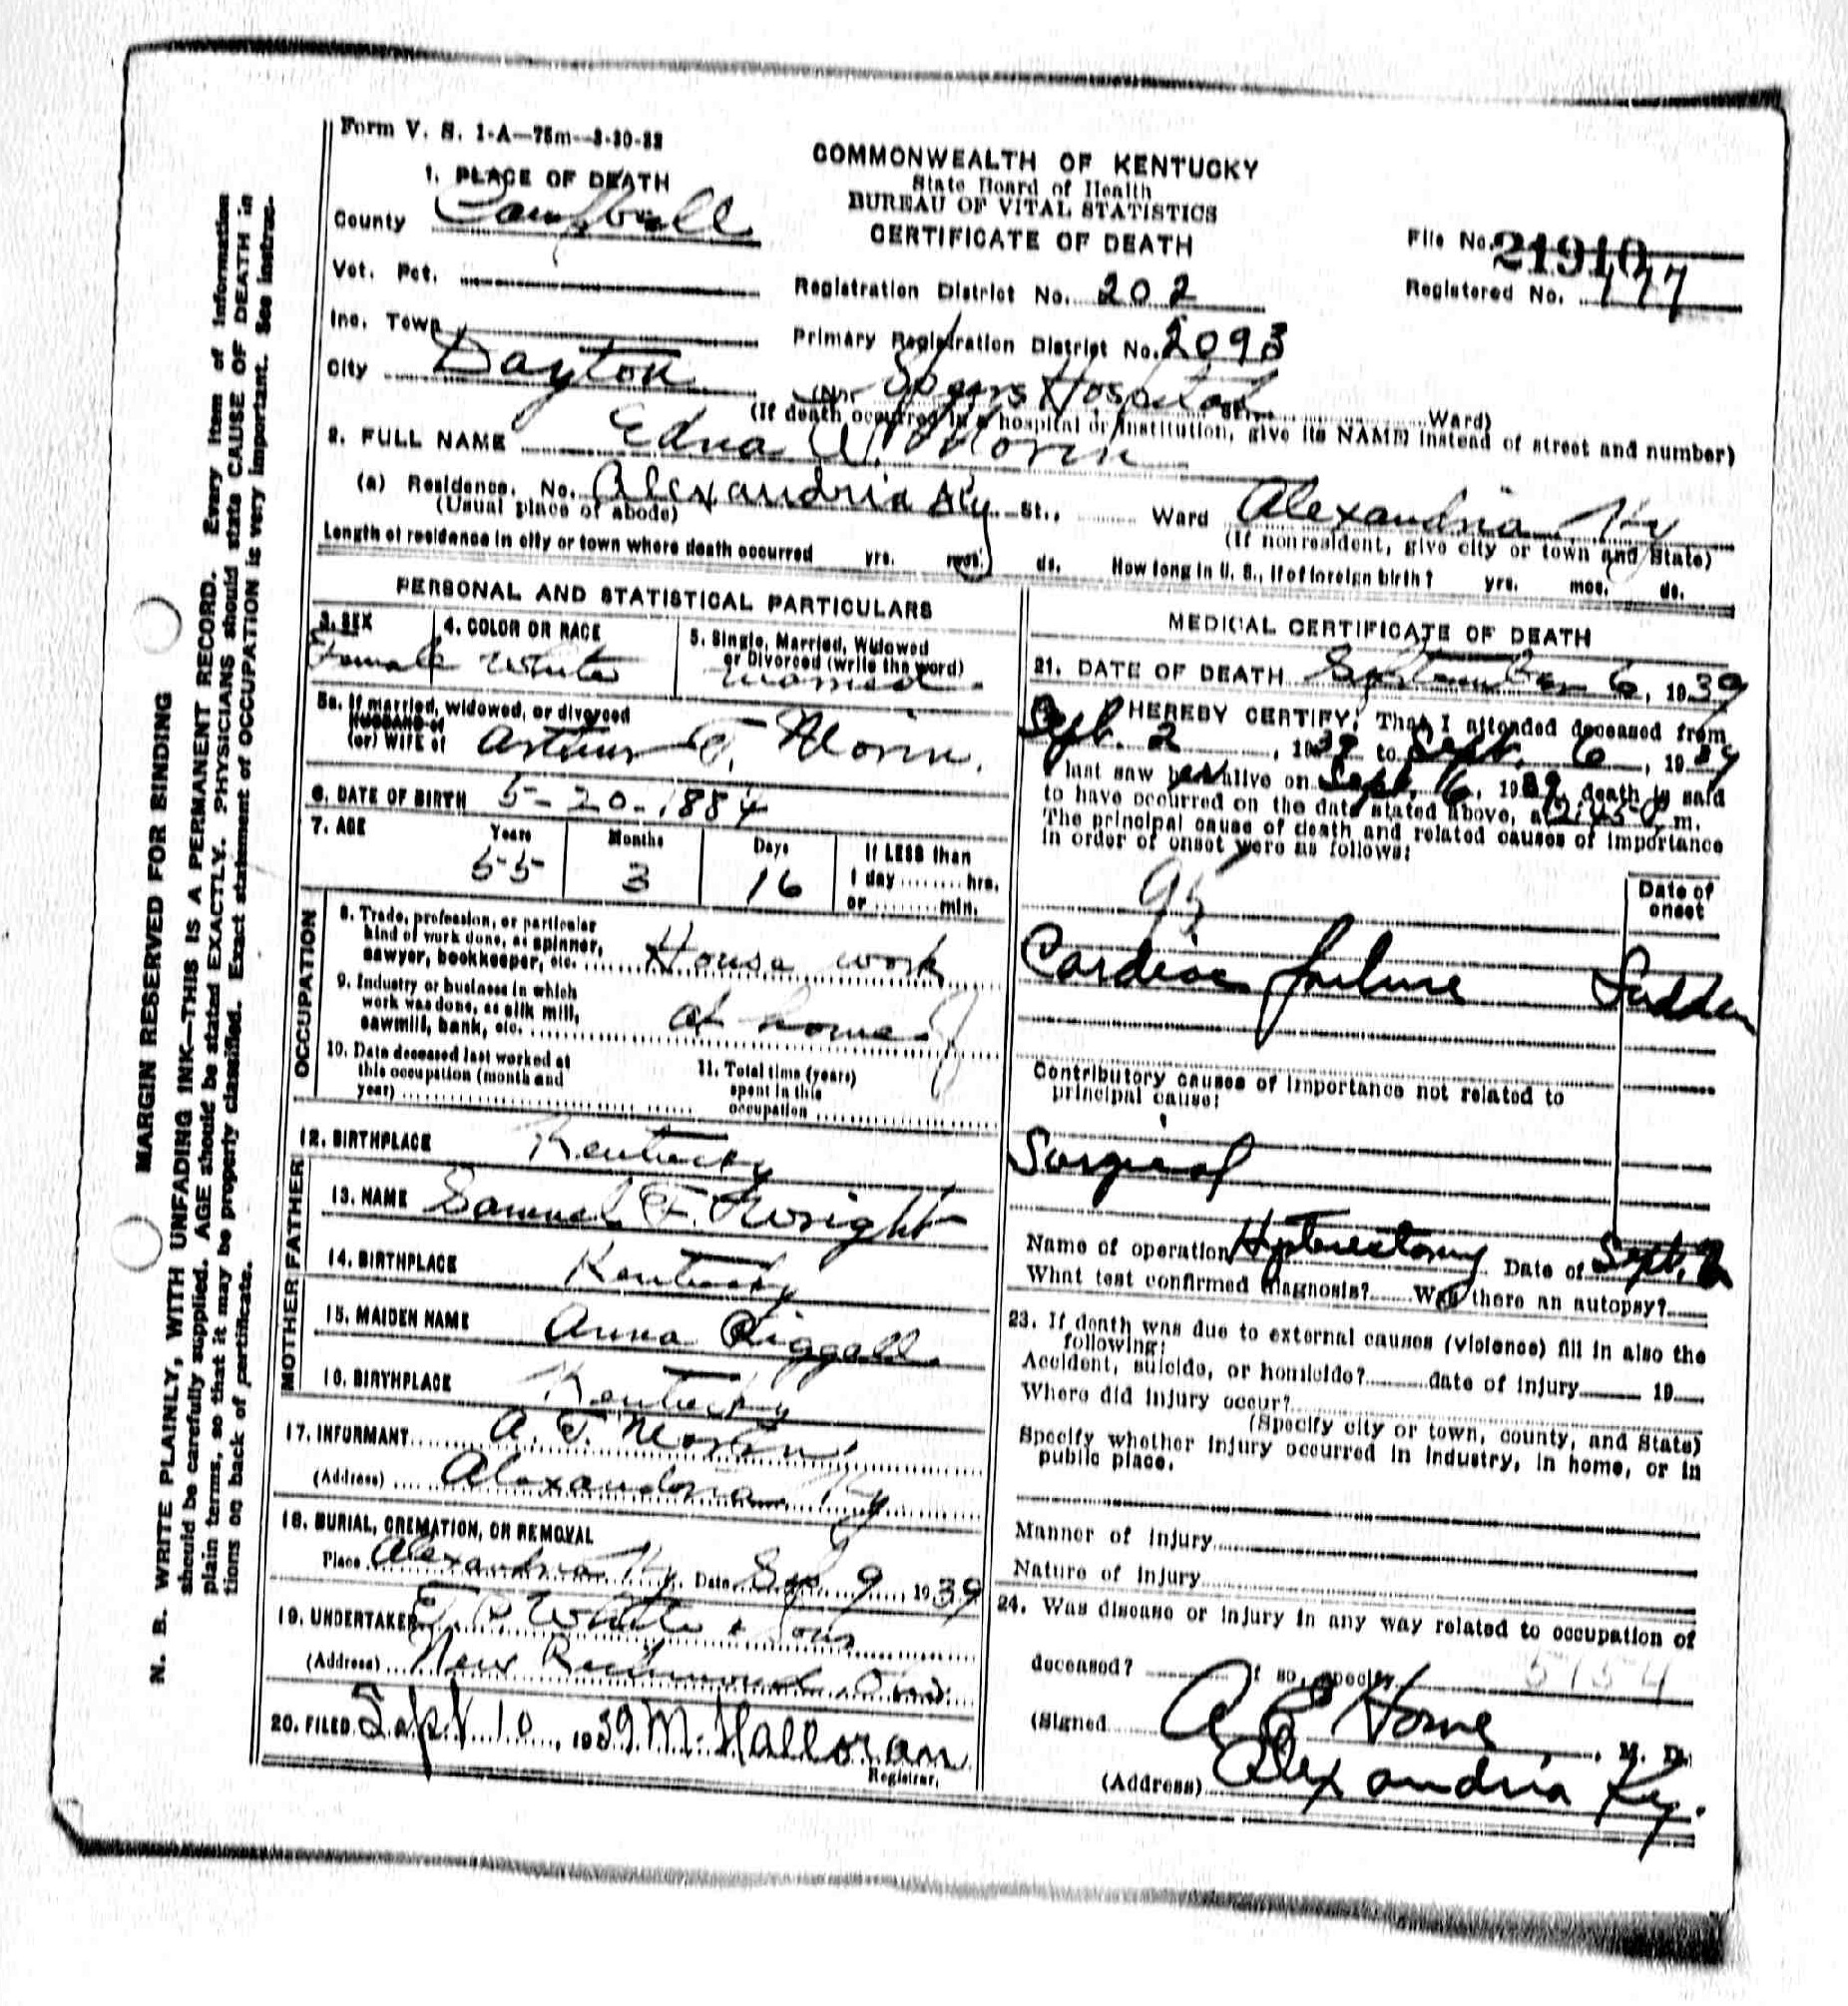 Form V. S. 1-A—75m—3-30-32
COMMONWEALTH OF KENTUCKY
State Board of Health
BUREAU OF VITAL STATISTICS
CERTIFICATE OF DEATH
File No. 21910
Registered No. 177
1. PLACE OF DEATH
County Campbell
Vot. Pct.
Inc. Town
City Dayton
Registration District No. 202
Primary Registration District No. 2093
(No. Speers Hospital St. Ward)
(If death occurred in a hospital or institution, give its NAME instead of street and number)
2. FULL NAME Edna W. Morin
(a) Residence. No. Alexandria Ky St., Ward Alexandria Ky
(Usual place of abode) (If nonresident, give city or town and State)
Length of residence in city or town where death occurred yrs. mos. ds. How long in U. S., if of foreign birth? yrs. mos. ds.
PERSONAL AND STATISTICAL PARTICULARS
3. SEX Female
4. COLOR OR RACE White
5. Single, Married, Widowed
or Divorced (write the word)
Married
5a. If married, widowed, or divorced
HUSBAND of
(or) WIFE of Arthur T. Morin.
6. DATE OF BIRTH 5-20-1884
7. AGE Years 55 Months 3 Days 16
If LESS than
1 day ........ hrs.
or ........ min.
OCCUPATION
8. Trade, profession, or particular
kind of work done, as spinner,
sawyer, bookkeeper, etc. House work
9. Industry or business in which
work was done, as silk mill,
sawmill, bank, etc. at home
10. Date deceased last worked at
this occupation (month and
year)
11. Total time (years)
spent in this
occupation
12. BIRTHPLACE Kentucky
FATHER
13. NAME Samuel F. Wright
14. BIRTHPLACE Kentucky
MOTHER
15. MAIDEN NAME Anna Riggall
16. BIRTHPLACE Kentucky
17. INFORMANT A. T. Morin
(Address) Alexandria Ky
18. BURIAL, CREMATION, OR REMOVAL
Place Alexandria Ky. Date Sep 9, 1939
19. UNDERTAKER White & Sons
(Address) New Richmond, Ohio
20. FILED Sept 10, 1939 M. Halloran
Registrar.
MEDICAL CERTIFICATE OF DEATH
21. DATE OF DEATH September 6, 1939
I HEREBY CERTIFY, That I attended deceased from
Sept. 2, 1939 to Sept. 6, 1939
I last saw her alive on Sept. 6, 1939, death is said
to have occurred on the date stated above, at 12:45 P. m.
The principal cause of death and related causes of importance
in order of onset were as follows:
Date of
onset
95
Cardiac failure Sudden
Contributory causes of importance not related to
principal cause:
Surgical
Name of operation Hysterectomy Date of Sept. 2
What test confirmed diagnosis? Was there an autopsy?
23. If death was due to external causes (violence) fill in also the
following:
Accident, suicide, or homicide? date of injury 19
Where did injury occur?
(Specify city or town, county, and State)
Specify whether injury occurred in industry, in home, or in
public place.
Manner of injury
Nature of injury
24. Was disease or injury in any way related to occupation of
deceased? If so, specify
(Signed M. D.
(Address) Alexandria Ky.
MARGIN RESERVED FOR BINDING
N. B. WRITE PLAINLY, WITH UNFADING INK—THIS IS A PERMANENT RECORD. Every item of information
should be carefully supplied. AGE should be stated EXACTLY. PHYSICIANS should state CAUSE OF DEATH in
plain terms, so that it may be properly classified. Exact statement of OCCUPATION is very important. See instruc-
tions on back of certificate.